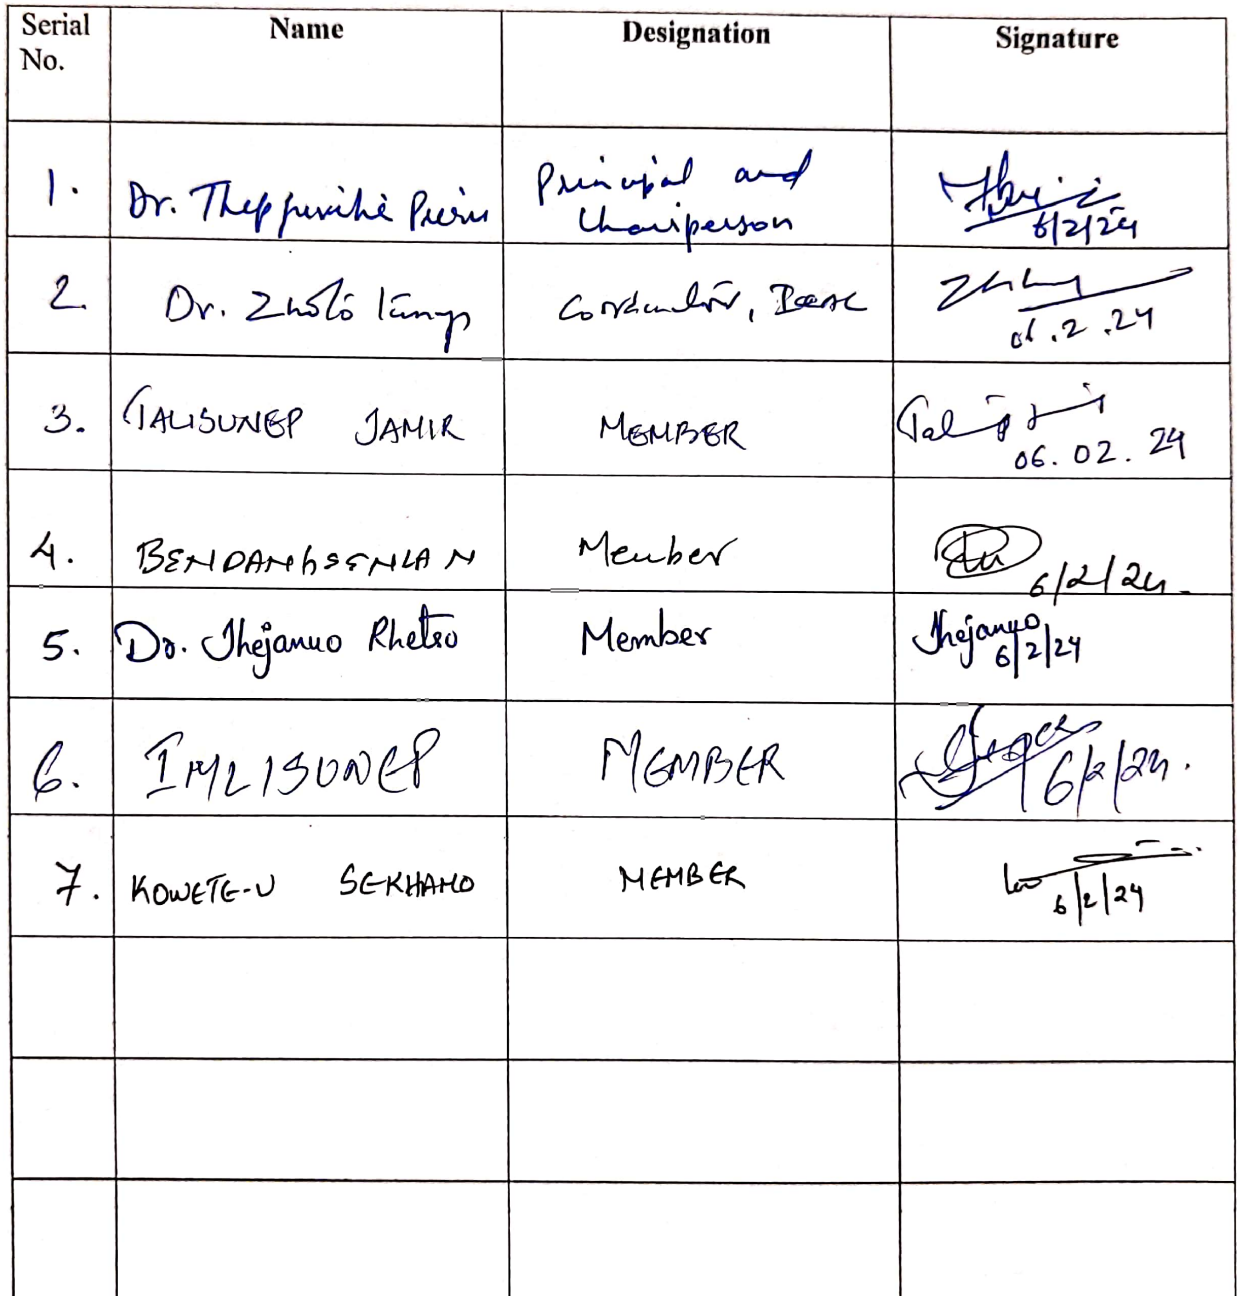 Serial No. Name Designation Signature
1. Dr. Theppuvihè Pieru Principal and Chairperson 6/2/24
2. Dr. Coordinator, 06.2.24
3. TALISUNEP JAMIR MEMBER 06.02.24
4. BENDANGSENLA N Member 6/2/24.
5. Dr. Jhejanuo Rhetso Member Jhejanuo 6/2/24
6. IMLISUNEP MEMBER 6/2/24.
7. KOWETE-U SEKHAMO MEMBER 6/2/24